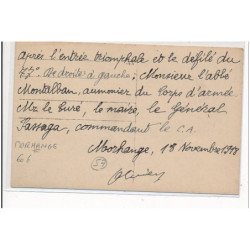 après l'entrée triomphale et le défilé du
77°. De droite à gauche ; Monsieur l'abbé
Montalban, aumonier du Corps d'armée
Mr le Curé, le maire, le Général
Passaga, commandant le C.A.
Morhange, 18 Novembre 1918
MORHANGE